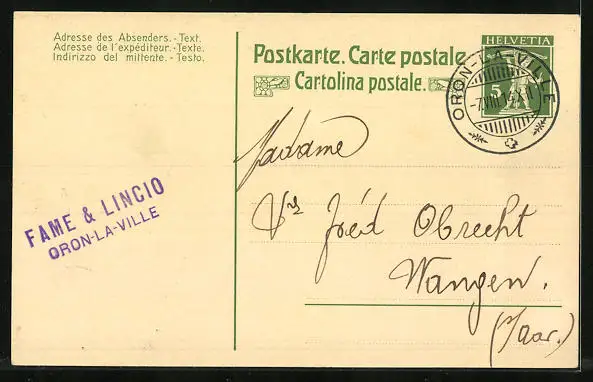 Adresse des Absenders. - Text.
Adresse de l'expéditeur. - Texte.
Indirizzo del mittente. - Testo.
Postkarte. Carte postale.
Cartolina postale.
HELVETIA
5
ORON-LA-VILLE
FAME & LINCIO
ORON-LA-VILLE
Madame
Vve Fréd Obrecht
Wangen.
(s/Aar.)